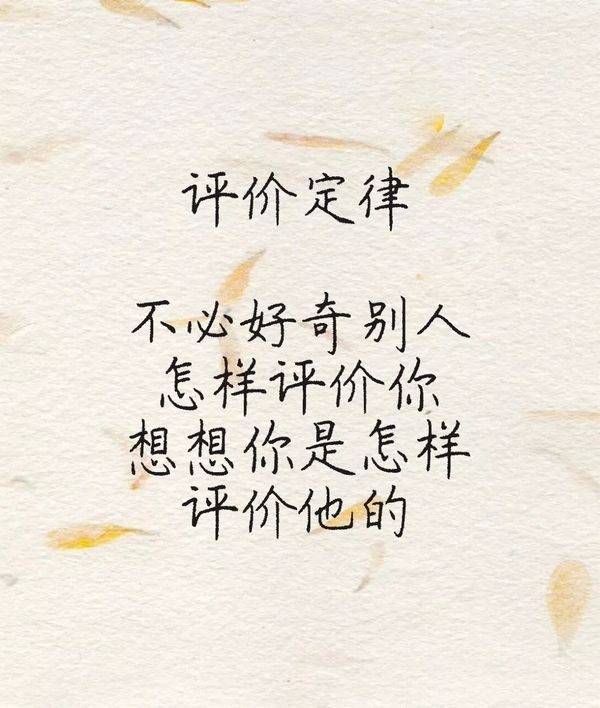 评价定律
不必好奇别人
怎样评价你
想想你是怎样
评价他的